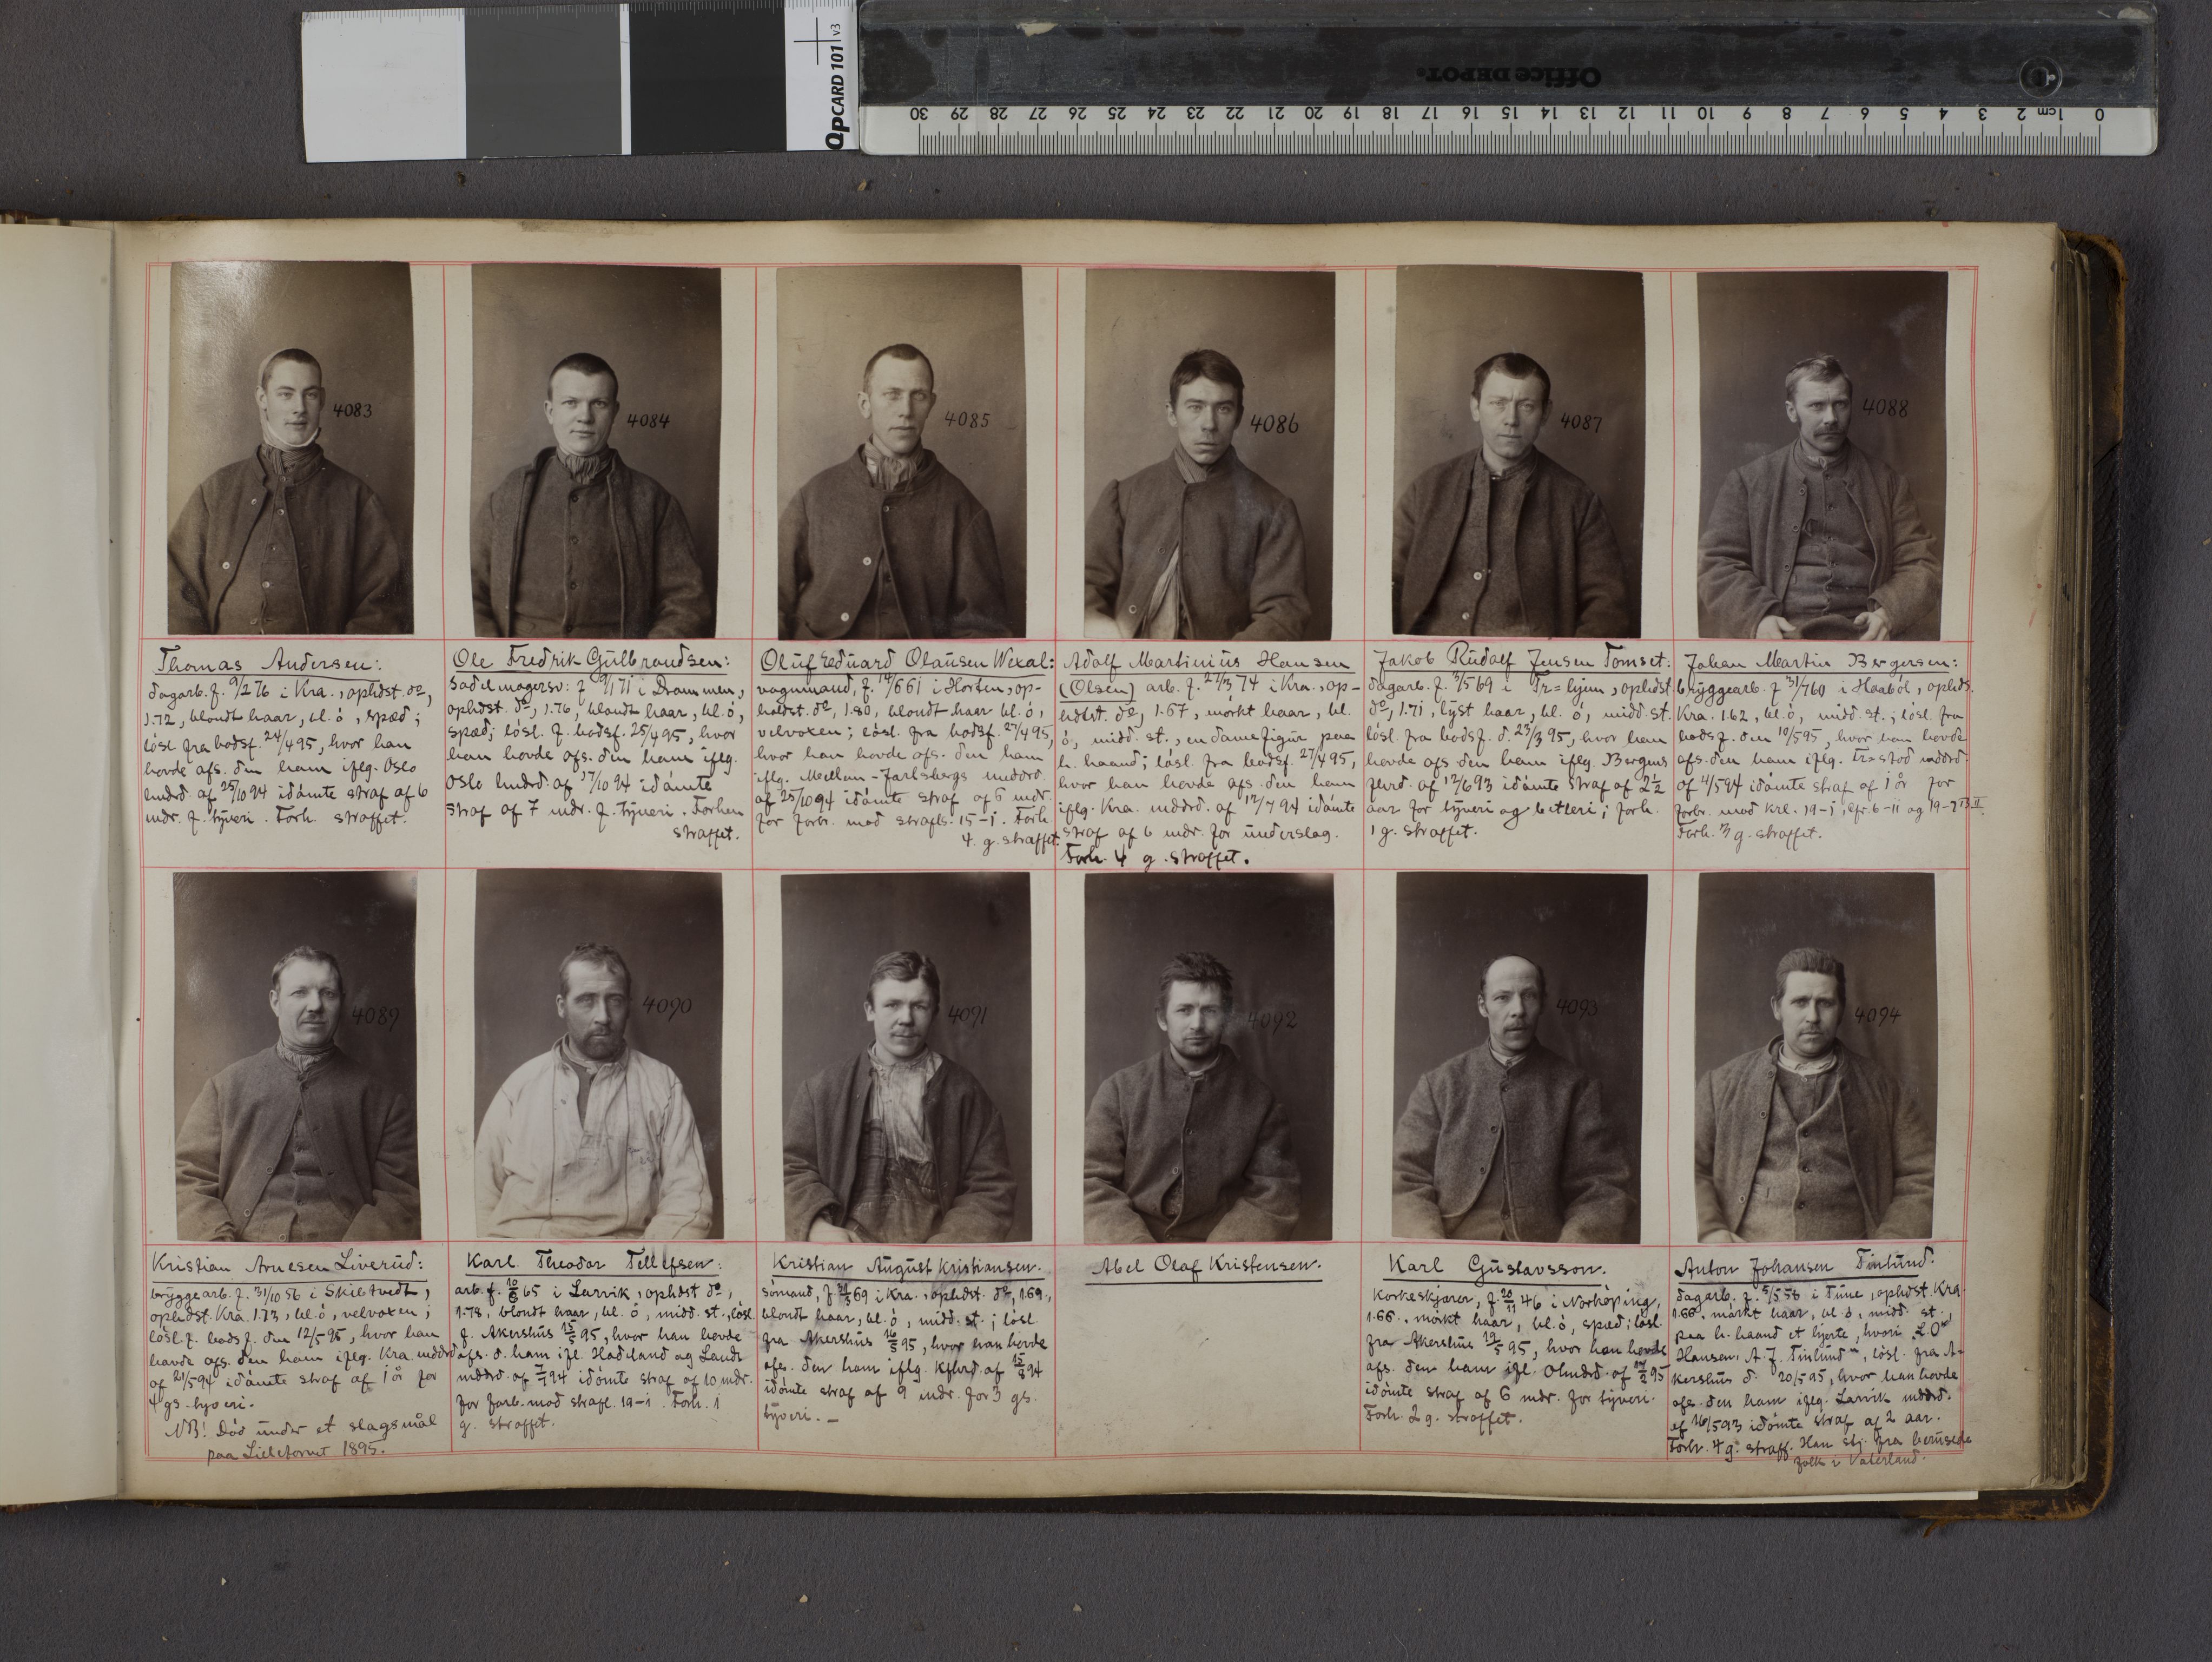 QpCARD 101 v3
Office DEPOT
0 1cm 2 3 4 5 6 7 8 9 10 11 12 13 14 15 16 17 18 19 20 21 22 23 24 25 26 27 28 29 30
4083
4084
4085
4086
4087
4088
Thomas Andersen:
dagarb. f. 9/2 76 i Kra., ophdst. do,
1.72, blondt haar, bl. ö, spæd;
lösl. fra bodsf. 24/4 95, hvor han
havde afs. den ham iflg. Oslo
mdrd. af 25/10 94 idömte straf af 6
mdr. f. tyveri. Forh. straffet.
Ole Fredrik Gulbrandsen:
Sadelmagersv. f. /1 71 i Drammen,
ophdst. do, 1.76, blondt haar, bl. ö,
spæd; lösl. f. bodsf. 25/4 95, hvor
han havde afs. den ham iflg.
Oslo mdrd. af 17/10 94 idömte
straf af 7 mdr. f. tyveri. Forhen
straffet.
Oluf Eduard Olausen Wexal:
vognmand, f. 14/6 61 i Horten, op-
holdst. do, 1.80, blondt haar bl. ö,
velvoxen; lösl. fra bodsf. 27/4 95,
hvor han havde afs. den ham
iflg. Mellem-Jarlsbergs meddrd.
af 25/10 94 idömte straf af 6 mdr.
for forbr. mod strafls. 15-1. Forh.
4. g. straffet.
Adolf Martinius Hansen
(Olsen) arb. f. 27/3 74 i Kra., op-
hdst. do, 1.67, mörkt haar, bl.
ö, midd. st., en damefigur paa
h. haand; lösl. fra bodsf. 27/4 95,
hvor han havde afs. den ham
iflg. Kra. mddrd. af 12/7 94 idömte
straf af 6 mdr. for underslag.
Forh. 4 g. straffet.
Jakob Rudolf Jensen Tomset:
dagarb. f. 3/5 69 i Tr=hjem, ophdst.
do, 1.71, lyst haar, bl. ö, midd. st.
lösl. fra bodsf. d. 25/3 95, hvor han
havde afs den ham iflg. Bergens
af 12/6 93 idömte straf af 2½
aar for tyveri og betleri; forh.
1 g. straffet.
Johan Martin Bergersen:
bryggearb. f 31/7 60 i Haaböl, ophds.
Kra. 1.62, bl. ö, midd. st.; lösl. fra
bodsf. den 10/5 95, hvor han havde
afs. den ham iflg. Fr=stad mddrd.
af 4/5 94 idömte straf af 1 år for
forbr. mod krl. 19-1, kfr. 6-11 og 19-2
Forh. 3 g. straffet.
4089
4090
4091
4092
4093
4094
Kristian Arnesen Liverud:
bryggearb. f. 31/10 56 i Skibtvedt,
ophdst. Kra. 1.73, bl. ö, velvoxen;
lösl. f. bodsf. den 12/5 95, hvor han
havde afs. den ham iflg. Kra. mddrd
af 21/5 94 idömte straf af 1 år for
4 gs. tyveri.
NB! Död under et slagsmål
paa Lilletorvet 1895.
Karl Theodor Tellefsen:
arb. f. 65 i Larvik, ophdst do,
1.78, blondt haar, bl. ö, midd. st., lösl.
f. Akershus 15/5 95, hvor han havde
afs. d. ham ifl. Hadeland og Lands
mddrd. af 94 idömte straf af 10 mdr.
for forb. mod strafl. 19-1. Forh. 1
g. straffet.
Kristian August Kristiansen.
sömand, f. 69 i Kra., ophdst. do, 1.69,
blondt haar, bl. ö, midd. st.; lösl
fra Akershus 16/5 95, hvor han havde
afs. den ham iflg. af 94
idömte straf af 9 mdr. for 3 gs
tyveri. —
Abel Olaf Kristensen.
Karl Gustavsson.
korkeskjærer, f. 20/11 46 i Norköping,
1.66. mörkt haar, bl. ö, spæd; lösl.
fra Akershus 19/5 95, hvor han havde
afs. den ham ifl. Omdrd. af 95
idömte straf af 6 mdr. for tyveri.
Forh. 2 g. straffet.
Anton Johansen Tinlund.
dagarb. f. 5/5 56 i Tune, ophdst. Kra.
1.66. mörkt haar, bl. ö, midd. st.,
paa h. haand et hjerte, hvori „L O
Hansen, A. J. Tinlund", lösl. fra A-
kershus d. 20/5 95, hvor han havde
afs. den ham iflg. Larvik mddrd.
af 16/5 93 idömte straf af 2 aar.
Forh. 4 g. straff. Han stj. fra berusede
folk i Vaterland.